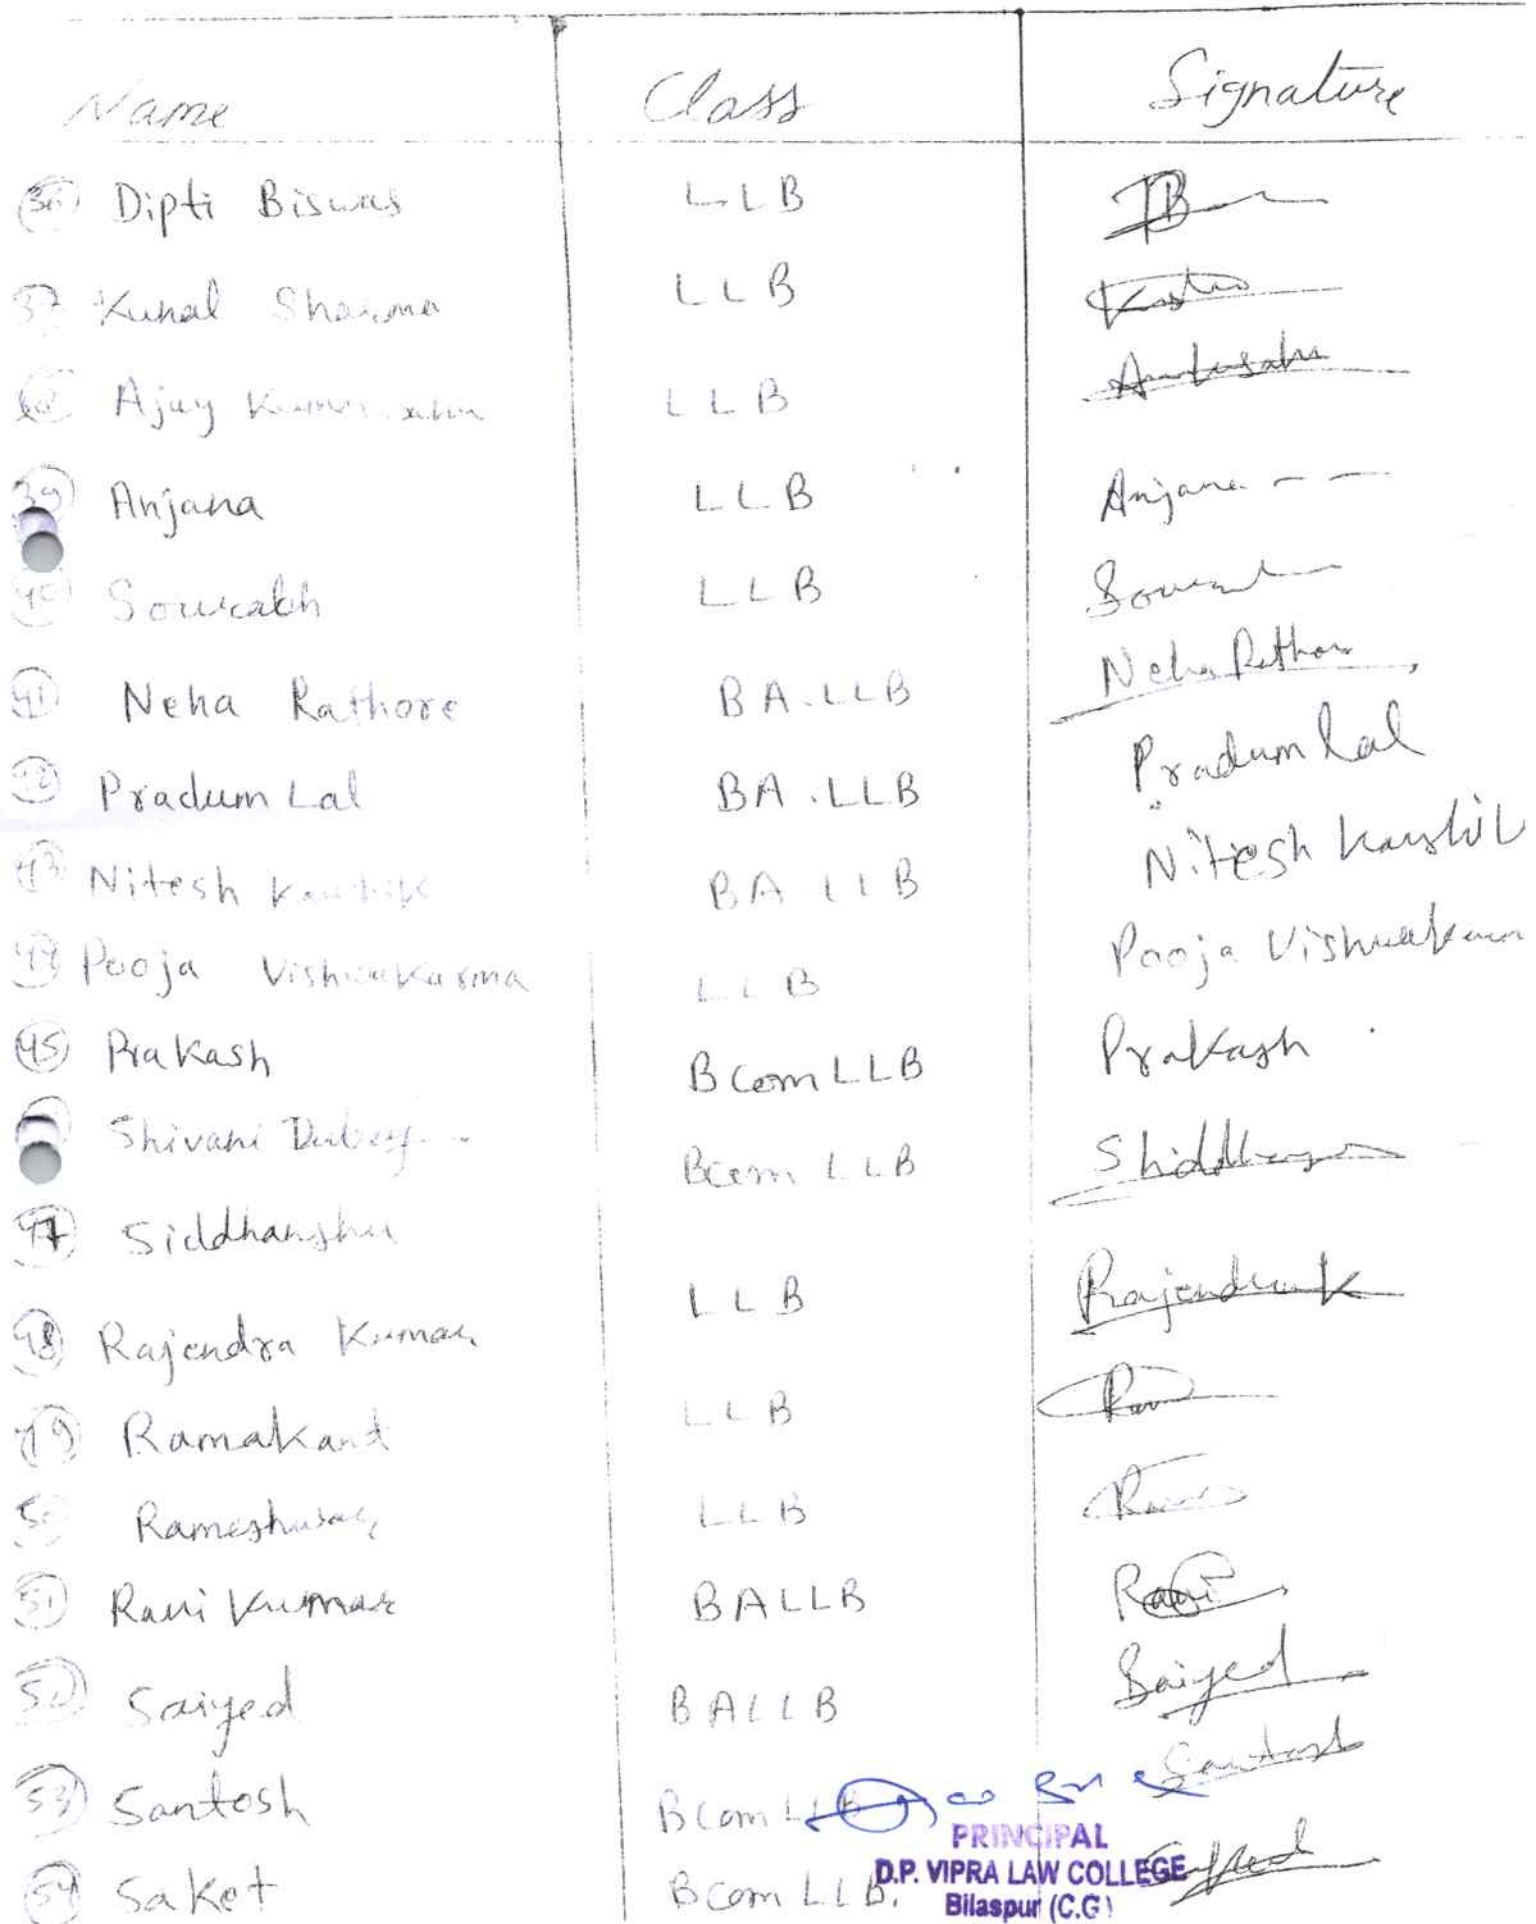 Name Class Signature
36 Dipti Biswas LLB DB
37 Kunal Sharma LLB
Ajay Kumar LLB
39 Anjana LLB Anjana
40 Sourabh LLB
41 Neha Rathore BA.LLB Neha Rathore
42 Pradum Lal BA.LLB Pradum lal
43 Nitesh Kaushik BA LLB Nitesh Kaushik
44 Pooja Vishwakarma LLB Pooja Vishwakarma
45 Prakash BCom LLB Prakash
Shivani Dubey BCom LLB
47 Siddhanshu
48 Rajendra Kumar LLB Rajendra K
49 Ramakant LLB
50 Rameshwar LLB
51 Ravi Kumar BALLB Ravi
52 Saiyed BALLB Saiyed
53 Santosh BCom LLB Santosh
PRINCIPAL
D.P. VIPRA LAW COLLEGE
54 Saket BCom LLB.
Bilaspur (C.G)